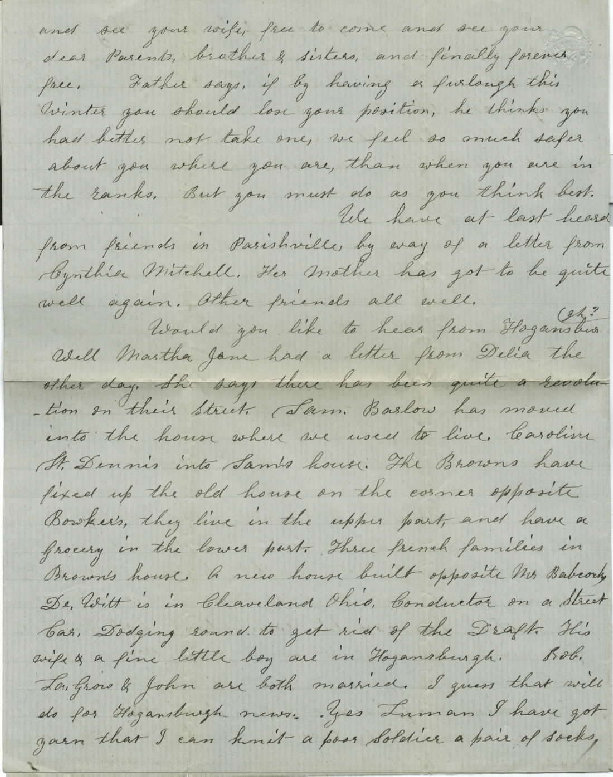 and see your wife, free to come and see your
dear Parents, brother & sisters, and finally forever
free. Father says, if by having a furlough this
Winter you should lose your position, he thinks you
had better not take one, we feel so much safer
about you where you are, than when you are in
the ranks. But you must do as you think best.
We have at last heard
from friends in Parishville, by way of a letter from
Cynthia Mitchell. Her Mother has got to be quite
well again. Other friends all well.
Would you like to hear from Hogansbur
(gh?
Well Martha Jane had a letter from Delia the
other day. She says there has been quite a revolu-
-tion on their Street. Sam. Barlow has moved
into the house where we used to live. Caroline
St. Dennis into Sam's house. The Browns have
fixed up the old house on the corner opposite
Bowker's, they live in the upper part, and have a
grocery in the lower part. Three french families in
Brown's house. A new house built opposite Mr Babcock
De, Witt is in Cleaveland Ohio, Conductor on a Street
Car. Dodging round to get rid of the Draft. His
wife & a fine little boy are in Hogansburgh. Rob.
& John are both married. I guess that will
do for Hogansburgh news. Yes Luman I have got
yarn that I can knit a poor Soldier a pair of socks,